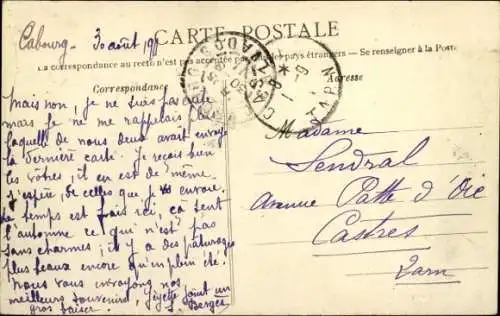 Cabourg 30 août
CARTE POSTALE
La correspondance au recto n'est pas acceptée par tous les pays étrangers — Se renseigner à la Poste
Correspondance
Adresse
Mais non, je ne suis pas
mais je ne me rappelais plus
laquelle de nous deux avait envoyé
la dernière carte. Je reçois bien
les vôtres, il en est de même
j'espère, de celles que je vs envoie.
Le temps est frais ici, ça sent
l'automne ce qui n'est pas
sans charmes; il y a des pâturages
plus beaux encore qu'en plein été.
Nous vous envoyons nos
meilleurs souvenirs, joint un
gros baiser. Berges
Madame
Sendral
Avenue Patte d'Oie
Castres
Tarn
CALVADOS